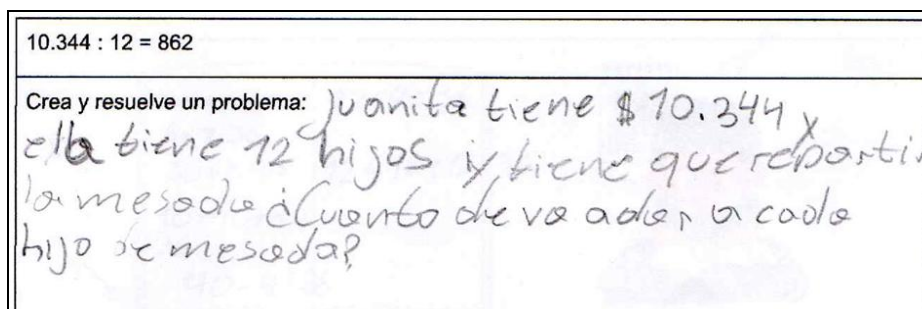 10.344 : 12 = 862
Crea y resuelve un problema: Juanita tiene $10.344 y
ella tiene 12 hijos y tiene que repartir
la mesada ¿Cuanto le va a dar a cada
hijo de mesada?